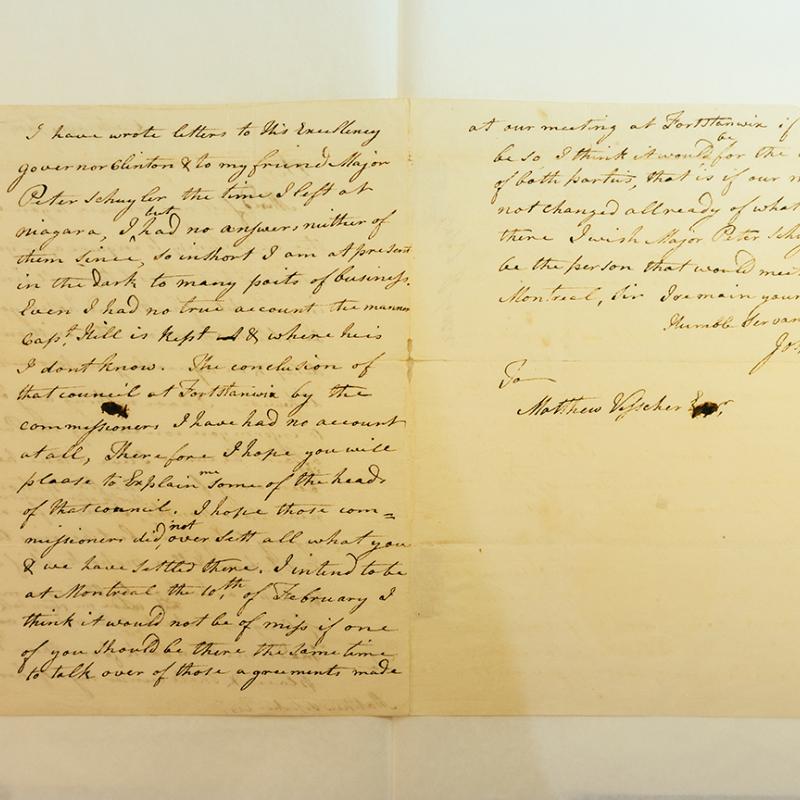 I have wrote letters to His Excellency
governor Clinton & to my friend Major
Peter Schuyler the time I left at
niagara, I but had no answers neither of
them since, so in short I am at present
in the dark to many paits of business.
Even I had no true account the manner
Capt. Hill is Kept & where he is
I dont know. The conclusion of
that council at Fortstanwix by the
commissioners I have had no account
at all, Therefore I hope you will
please to Explain me some of the heads
of that council. I hope those com=
missioners did not over sett all what you
& we have settled there. I intend to be
at Montreal the 10th of February I
think it would not be of miss if one
of you should be there the same time
to talk over of those agreements made
at our meeting at Fortstanwix if
be so I think it would be for the
of both parties, that is if our
not changed allready of what
there I wish Major Peter Schu
be the person that would mee
Montreal, Sir I remain your
Humble Servan
Jos
To
Matthew Visscher Esqr,